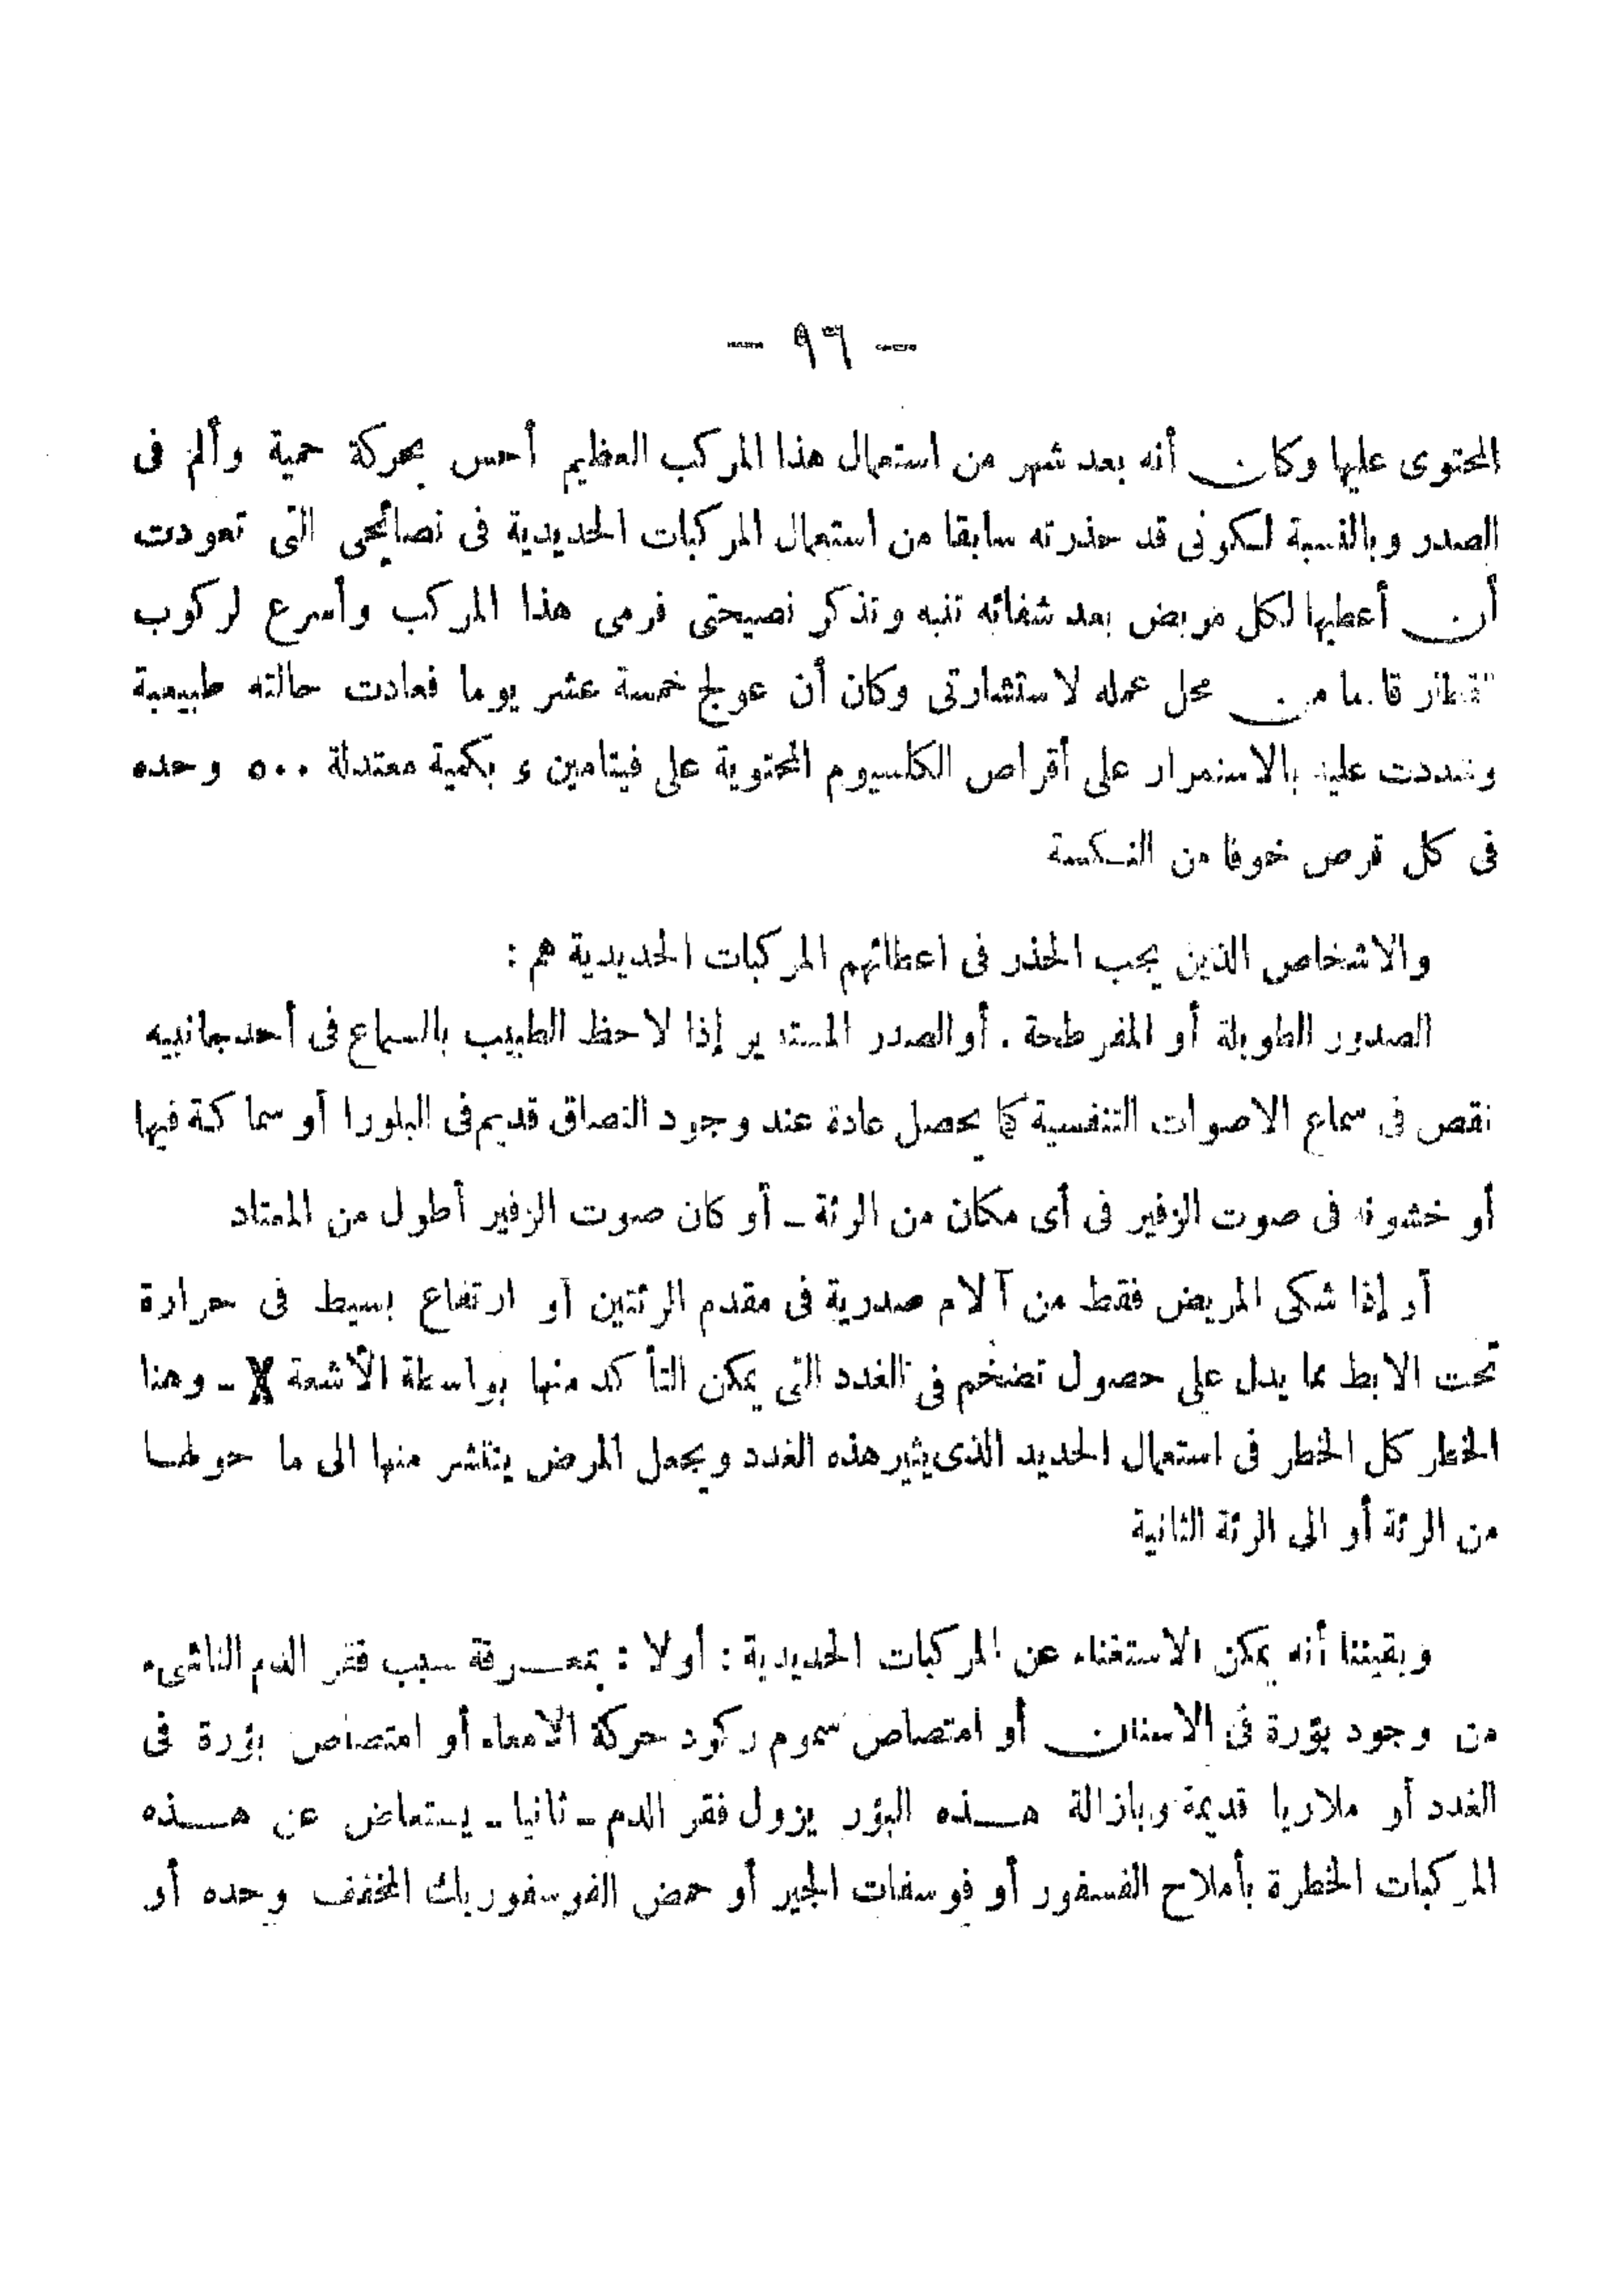 — ٩٦ —
المحتوى عليها وكان أنه بعد شهر من استعمال هذا المركب العظيم أحس بحركة حمية وألم فى
الصدر وبالنسبة لكونى قد حذرته سابقا من استعمال المركبات الحديدية فى نصائحى التى تعودت
أن أعطيها لكل مريض بعد شفائه تنبه وتذكر نصيحتى فرمى هذا المركب وأسرع لركوب
القطار قادما من محل عمله لاستشارتى وكان أن عولج خمسة عشر يوما فعادت حالته طبيعية
وشددت عليه بالاستمرار على أقراص الكلسيوم المحتوية على فيتامين ء بكمية معتدلة ٥٠٠ وحده
فى كل قرص خوفا من النكسة
والاشخاص الذين يجب الحذر فى اعطائهم المركبات الحديدية هم :
الصدور الطويلة أو المفرطحة . أو الصدر المستدير إذا لاحظ الطبيب بالسماع فى أحد جانبيه
نقص فى سماع الاصوات التنفسية كما يحصل عادة عند وجود التصاق قديم فى البلورا أو سماكة فيها
أو خشونه فى صوت الزفير فى أى مكان من الرئة ــ أو كان صوت الزفير أطول من المعتاد
أو إذا شكى المريض فقط من آلام صدرية فى مقدم الرئتين أو ارتفاع بسيط فى حرارة
تحت الابط مما يدل على حصول تضخم فى الغدد التى يمكن التأكد منها بواسطة الأشعة X ــ وهنا
الخطر كل الخطر فى استعمال الحديد الذى يثير هذه الغدد ويجعل المرض ينتشر منها الى ما حولها
من الرئة أو الى الرئة الثانية
وبقيتنا أنه يمكن الاستغناء عن المركبات الحديدية : أولا : بمعرفة سبب فقر الدم الناشىء
من وجود بؤرة فى الاسنان أو امتصاص سموم ركود حركة الامعاء أو امتصاص بؤرة فى
الغدد أو ملاريا قديمة وبازالة هذه البؤر يزول فقر الدم ــ ثانيا ــ يستعاض عن هذه
المركبات الخطرة بأملاح الفسفور أو فوسفات الجير أو حمض الفوسفوريك المخفف وحده أو